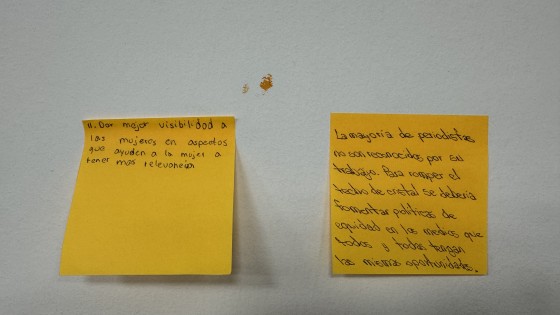 11. Dar mejor visibilidad a
las mujeres en aspectos
que ayuden a la mujer a
tener más relevancia
La mayoria de periodistas
no son reconocidos por su
trabajo. Para romper el
techo de cristal se deberia
fomentar politicas de
equidad en los medios que
todos y todas tengan
las mismas oportunidades.